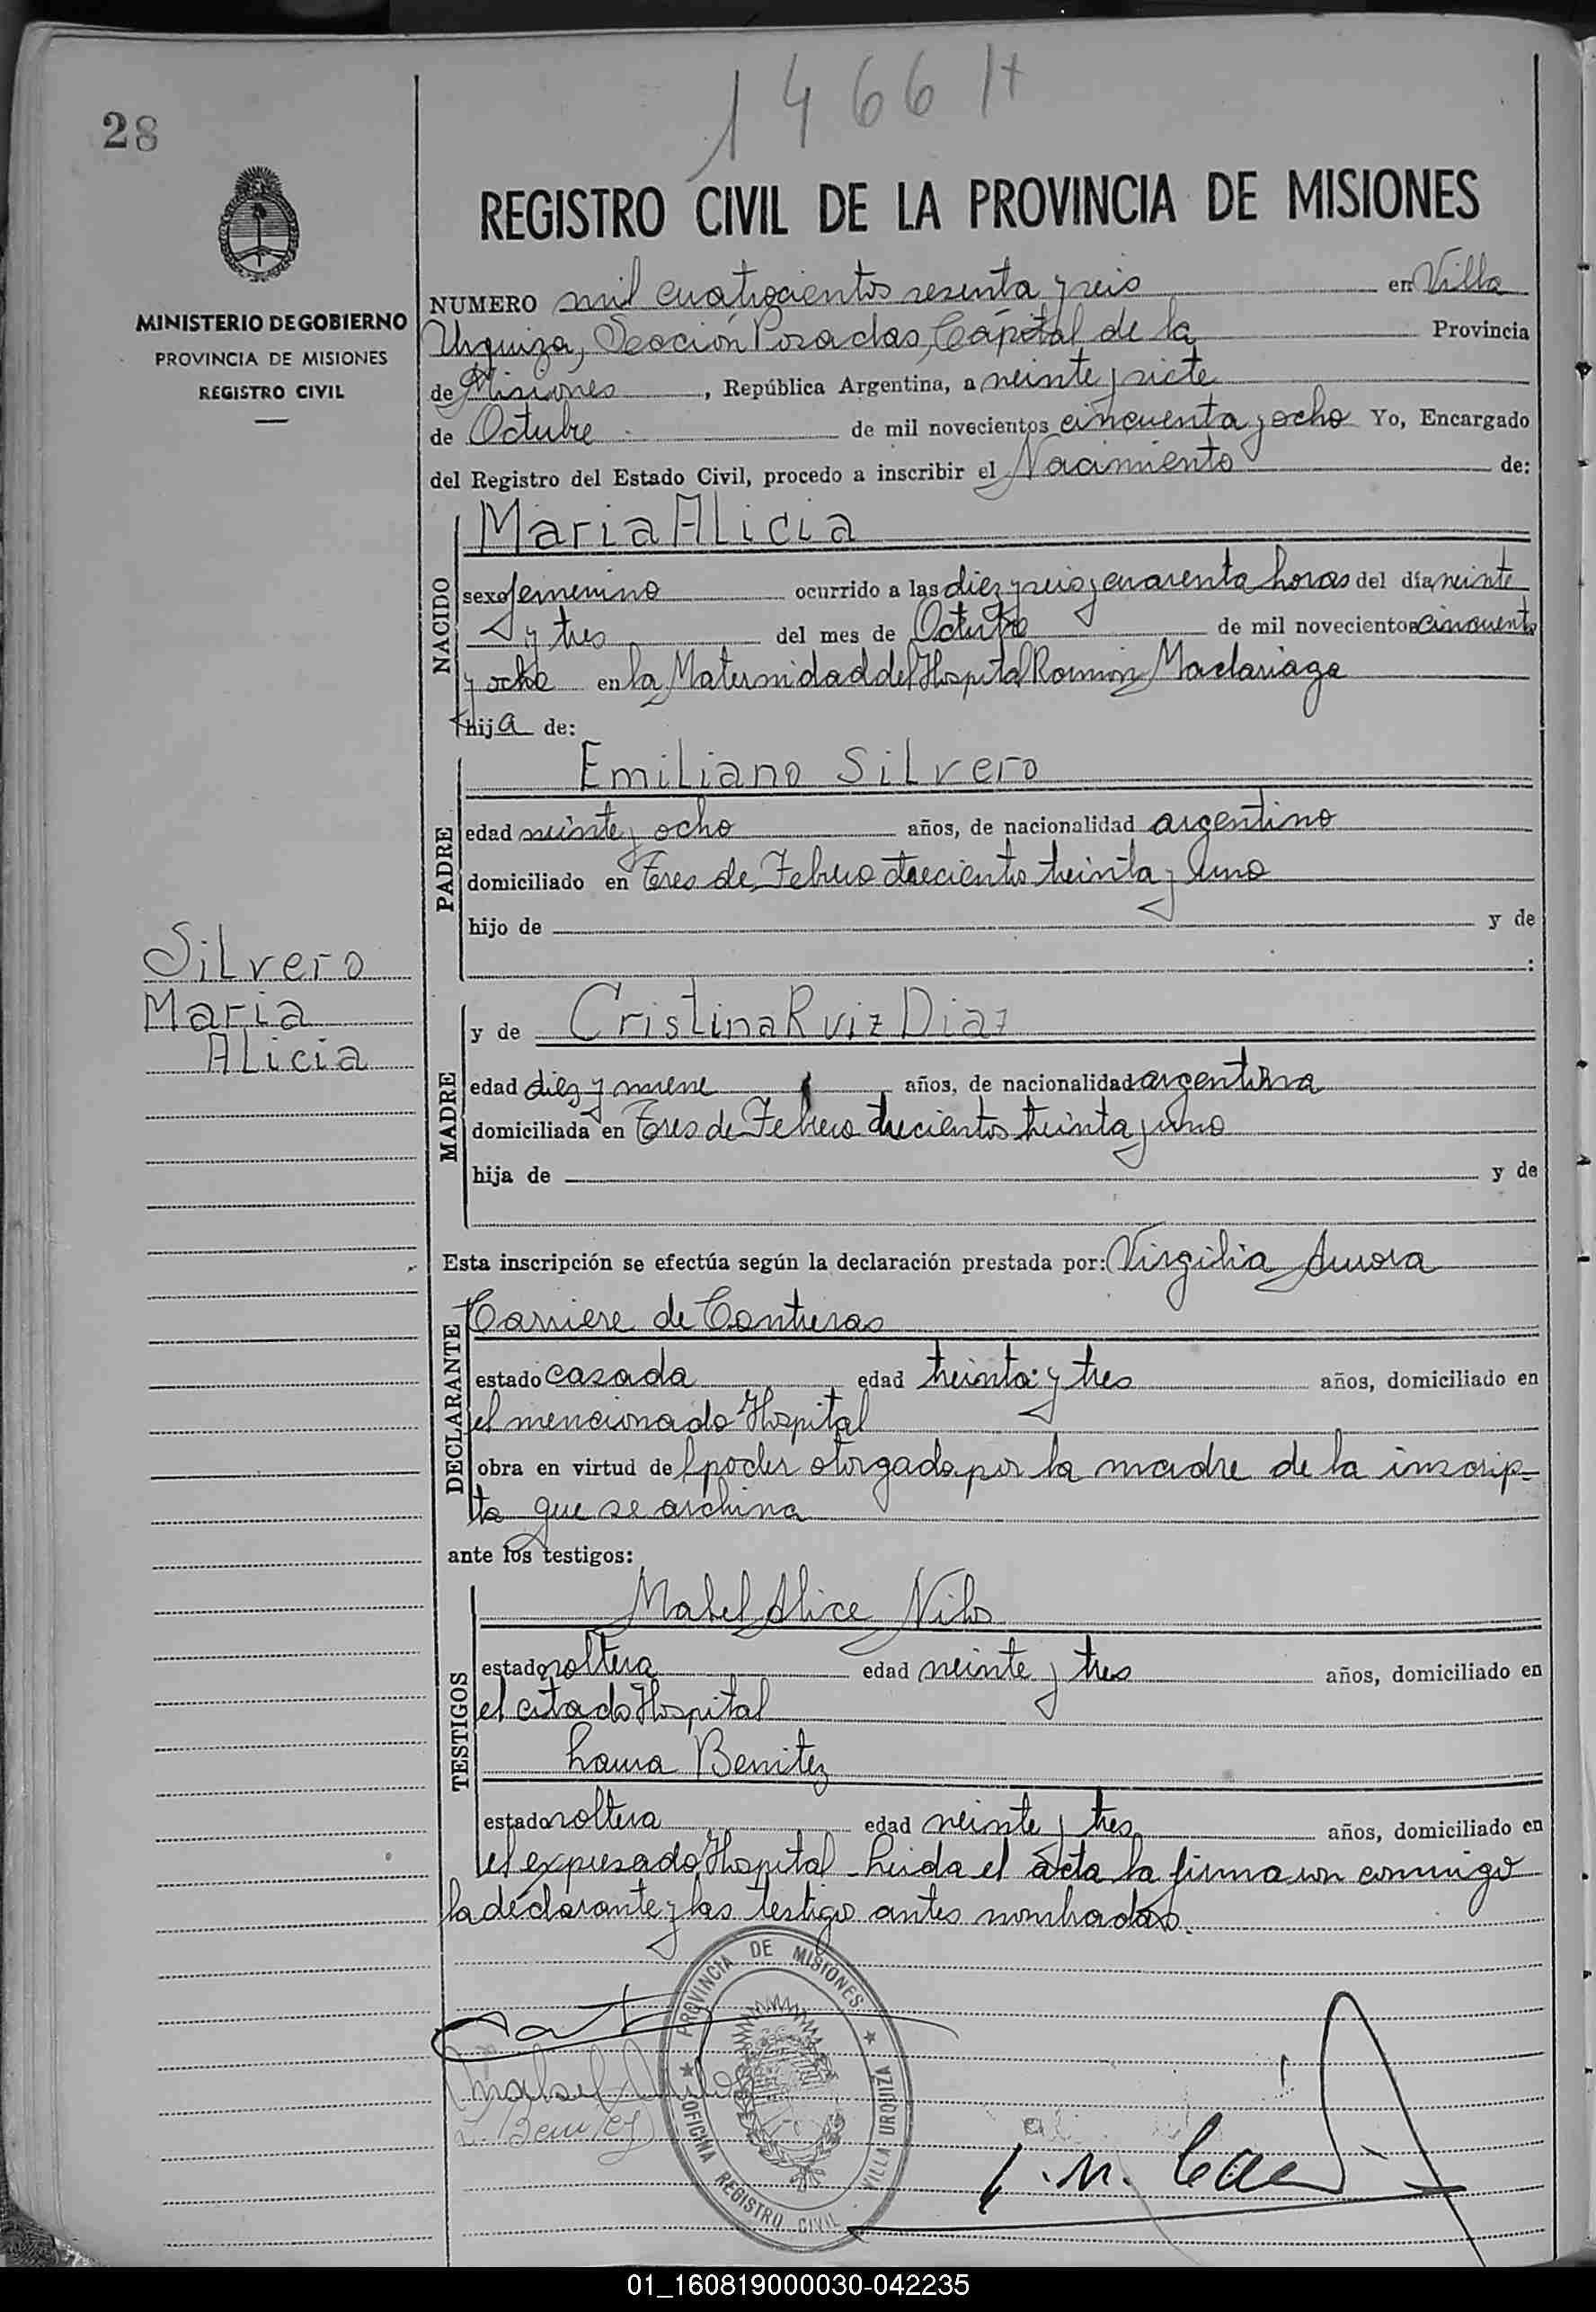 1466 H
28
REGISTRO CIVIL DE LA PROVINCIA DE MISIONES
MINISTERIO DE GOBIERNO
PROVINCIA DE MISIONES
REGISTRO CIVIL
NUMERO mil cuatrocientos sesenta y seis en Villa
Urquiza, Sección Posadas, Capital de la Provincia
de Misiones, República Argentina, a veinte y siete
de Octubre de mil novecientos cincuenta y ocho Yo, Encargado
del Registro del Estado Civil, procedo a inscribir el Nacimiento de:
NACIDO
Maria Alicia
sexo femenino ocurrido a las diez y seis y cuarenta horas del día veinte
y tres del mes de Octubre de mil novecientos cincuenta
y ocho en la Maternidad del Hospital Ramón Madariaga
hija de:
PADRE
Emiliano Silvero
edad veinte y ocho años, de nacionalidad argentino
domiciliado en Tres de Febrero trecientos treinta y uno
hijo de y de
:
Silvero
Maria
Alicia
MADRE
y de Cristina Ruiz Diaz
edad diez y nueve años, de nacionalidad argentina
domiciliada en Tres de Febrero trecientos treinta y uno
hija de y de
Esta inscripción se efectúa según la declaración prestada por: Virgilia Aurora
DECLARANTE
Carriere de Contreras
estado casada edad treinta y tres años, domiciliado en
el mencionado Hospital
obra en virtud del poder otorgado por la madre de la inscrip=
ta que se archiva
ante los testigos:
TESTIGOS
Mabel Alice Nilo
estado soltera edad veinte y tres años, domiciliado en
el citado Hospital
Laura Benitez
estado soltera edad veinte y tres años, domiciliado en
el expresado Hospital Leida el acta la firman conmigo
la declarante y las testigo antes nombradas.
PROVINCIA DE MISIONES
OFICINA REGISTRO CIVIL VILLA URQUIZA
L. Benitez
01_160819000030-042235